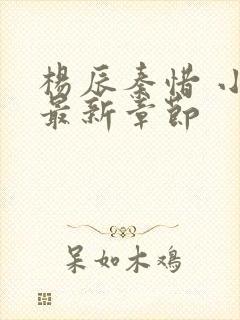 杨辰秦惜 小
最新章节
呆如木鸡